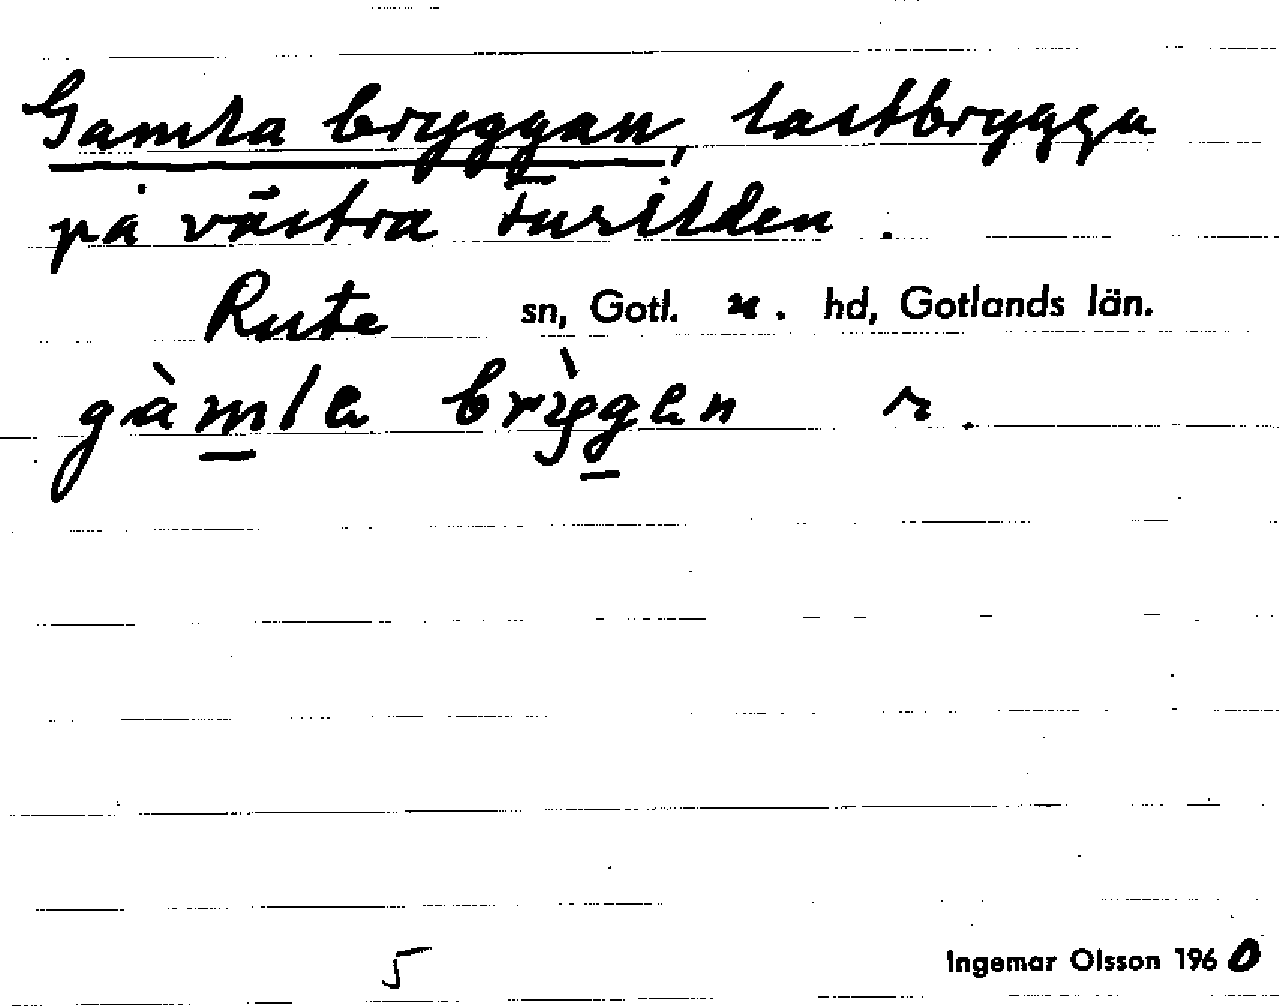 Gamla bryggan, lastbrygga
på västra Fursilden.
Rute sn, Gotl. n. hd, Gotlands län.
gàmla brỳgan r.
5
Ingemar Olsson 1960